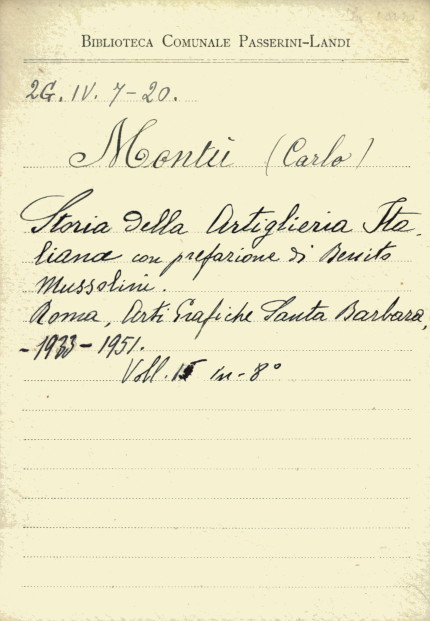 BIBLIOTECA COMUNALE PASSERINI-LANDI
2G. IV. 7-20.
Montù (Carlo)
Storia della Artiglieria Ita-
liana con prefazione di Benito
Mussolini.
Roma, Arti Grafiche Santa Barbara,
-1933-1951.
Voll. in-8°